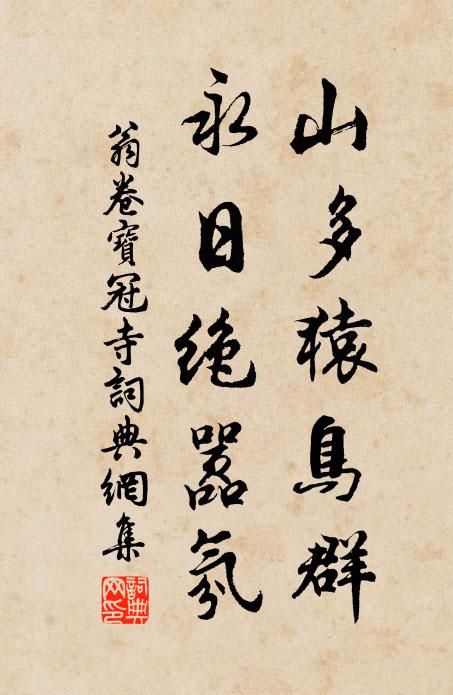 山多猿鳥群
永日絶囂氛
翁卷寶冠寺詞典網集
詞典網印